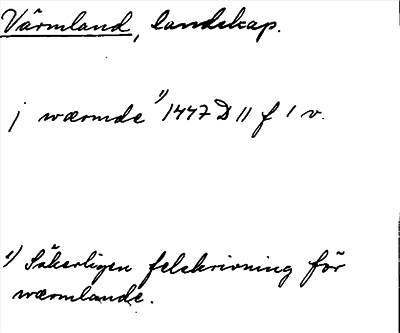 Värmland, landskap.
j wærmde ¹⁾ 1447 D 11 f 1 v.
¹⁾ Säkerligen felskrivning för
wærmlande.